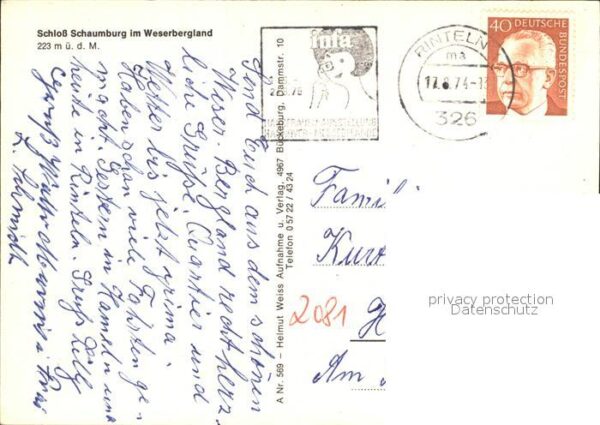 Schloß Schaumburg im Weserbergland
223 m ü. d. M.
Send Euch aus dem schönen
Weser-Bergland recht herz-
liche Grüße. Quartier und
Wetter bis jetzt prima
Haben schon viele Fahrten ge-
macht Gestern in Hameln und
heute in Rinteln. Gruß
Gruß
L. Schmidt
A Nr. 569 – Helmut Weiss Aufnahme u. Verlag, 4967 Bückeburg, Dammstr. 10
Telefon 0 57 22 / 43 24
infa
RINTELN
ma
17.8.74-13
326
40 DEUTSCHE
BUNDESPOST
Famil
Kurt
2081 H
Am
privacy protection
Datenschutz